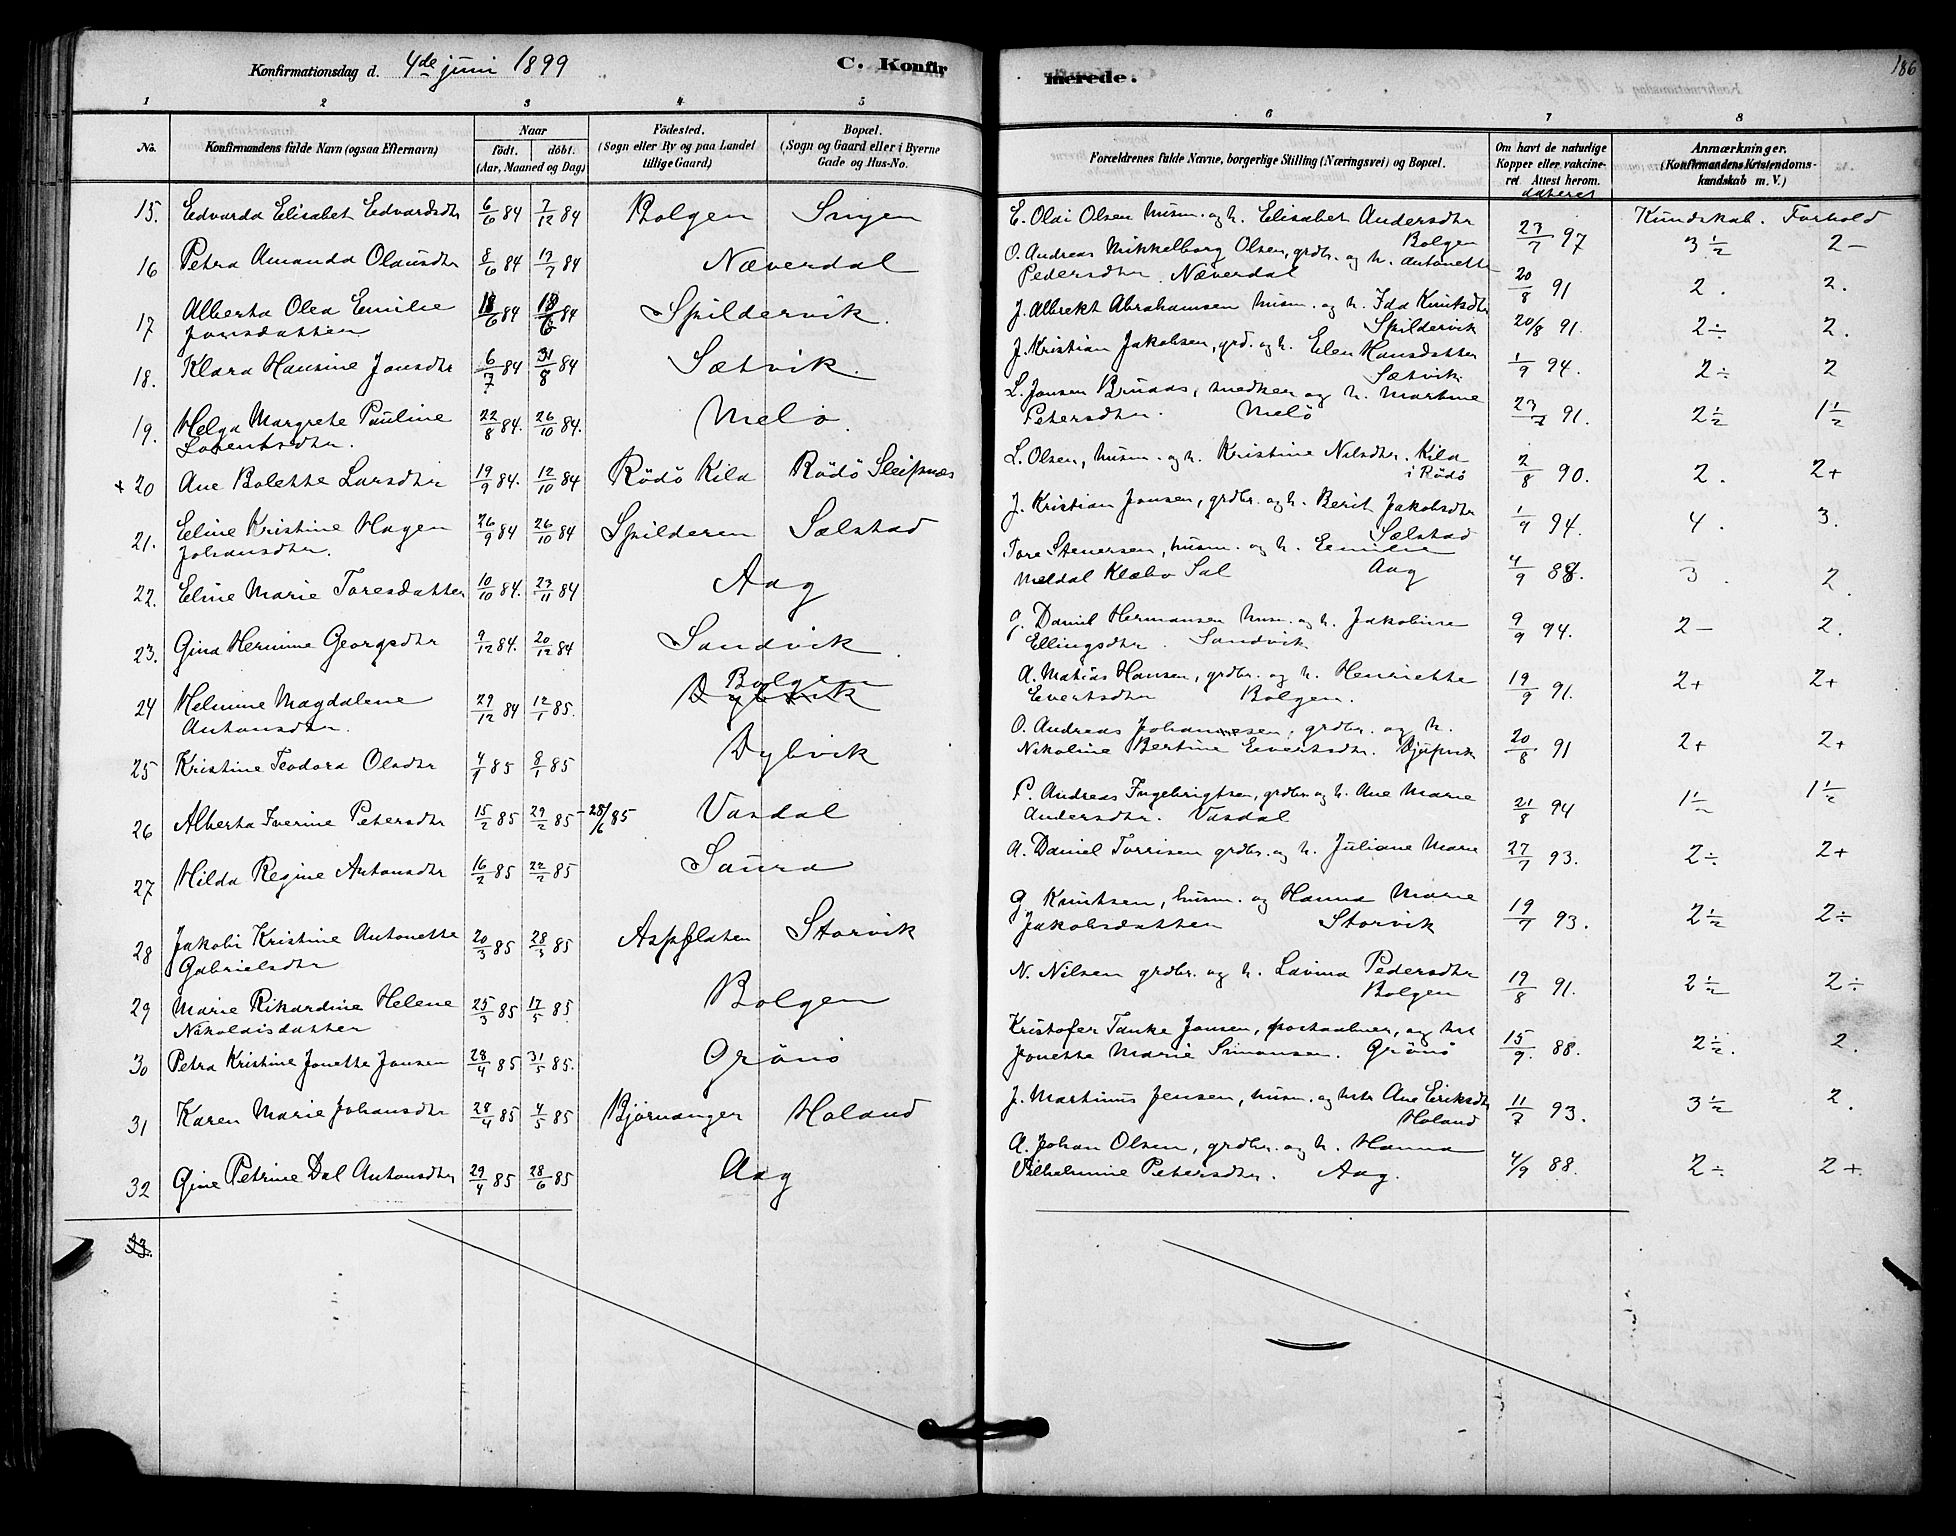 186
Konfirmationsdag d. 4de juni 1899 C. Konfirmerede.
1 2 3 4 5 6 7 8
No. Konfirmandens fulde Navn (ogsaa Efternavn) Naar født. døbt. (Aar, Maaned og Dag) Fødested. (Sogn eller By og paa Landet tillige Gaard) Bopæl. (Sogn og Gaard eller i Byerne Gade og Hus-No.) Forældrenes fulde Navne, borgerlige Stilling (Næringsvei) og Bopæl. Om havt de naturlige Kopper eller vakcineret Attest herom. dateret Anmærkninger. (Konfirmandens Kristendomskundskab m. V.)
Kundskab. Forhold
15. Edvarda Elisabet Edvardsdtr 6/6 84 7/12 84 Bolgen E. Olai Olsen husm. og h. Elisabet Andersdtr Bolgen 23/7 97 3 1/2 2-
16 Petra Amanda Olausdtr 8/6 84 17/7 84 Næverdal O. Andreas Mikkelborg Olsen, grdbr. og h. Antonette Pedersdtr. Næverdal 20/8 91 2. 2.
17 Alberta Olea Emilie Jonsdatter 18/6 84 18/6 84 Spildervik. J. Albrekt Abrahamsen husm. og h. Ida Knutsdtr Spildervik 20/8 91. 2÷ 2.
18. Klara Hansine Jonsdtr 6/7 84 31/8 84 Sætvik. J. Kristian Jakobsen, grd. og h. Elen Hansdatter Sætvik. 1/9 94. 2÷ 2
19. Helga Margrete Pauline Lorentsdtr. 22/8 84. 26/10 84. Melø. L. Jonsen Bruaas, snedker og h. Martine Petersdtr. Melø 23/7 91. 2 1/2 1 1/2
+ 20 Ane Bolette Larsdtr 19/9 84. 12/10 84 Rödö Kila Rödö Sleipnæs L. Olsen, husm. og h. Kristine Nilsdtr. Kila i Rödö 2/8 90. 2. 2+
21. Eline Kristine Hagen Johansdtr. 26/9 84 26/10 84 Spilderen Selstad J. Kristian Jonsen, grdbr. og h. Berit Jakobsdtr Selstad 1/9 94. 4. 3.
22. Eline Marie Toresdatter 10/10 84. 23/11 84 Aag Tore Stenersen, husm. og h. Emilie Meldal Klæbo Sal Aag 4/9 88. 3. 2.
23. Gina Hermine Georgsdtr 9/12 84. 20/12 84 Sandvik. G. Daniel Hermansen husm. og h. Jakobine Ellingsdtr. Sandvik. 9/9 94. 2- 2.
24 Helmine Magdalene Antonsdtr. 29/12 84 12/1 85. Bolgen Dybvik A. Matias Hansen, grdbr. og h. Henriette Evertsdtr Bolgen. 19/9 91. 2+ 2+
25 Kristine Teodora Olsdtr 4/1 85 8/1 85 Dybvik O. Andreas Johannesen, grdbr. og h. Nikoline Bertine Eivertsdtr. Djupvik 20/8 91 2+ 2+
26 Alberta Iverine Petersdtr 15/2 85 29/2 85 - 28/6 85 Vasdal P. Andreas Ingebrigtsen, grdbr. og h. Ane Marie Andersdtr. Vasdal 21/8 94 1 1/2 1 1/2
27 Hilda Regine Antonsdtr 16/2 85 22/2 85 Saura A. Daniel Torrisen grdbr. og h. Juliane Marie 27/7 93. 2÷ 2+
28 Jakobi Kristine Antonette Gabrielsdtr 20/3 85 28/3 85 Aspfloten Storvik G. Knutsen, husm. og Hanna Marie Jakobsdatter Storvik 19/7 93. 2 1/2 2÷
29 Marie Rikardine Helene Nikolaisdatter 25/3 85 17/5 85. Bolgen N. Nilsen grdbr. og h. Lavina Pedersdtr Bolgen 19/8 91. 2 1/2 2÷
30 Petra Kristine Jonette Jonsen 28/4 85 31/5 85. Grönö Kristofer Tanke Jonsen, postaabner, og hst Jonette Marie Simonsen. Grönö 15/9. 88. 2 1/2. 2.
31 Karen Marie Johansdtr 28/4 85 4/5 85 Bjørnanger Holand J. Martinus Jensen, husm. og hst Ane Eriksdtr Holand 11/7 93. 3 1/2 2.
32 Gine Petrine Dal Antonsdtr 29/4 85 28/6 85 Aag A. Johan Olsen, grdbr. og h. Hanna Vilhelmine Petersdtr. Aag. 4/9 88. 2÷ 2+
33.